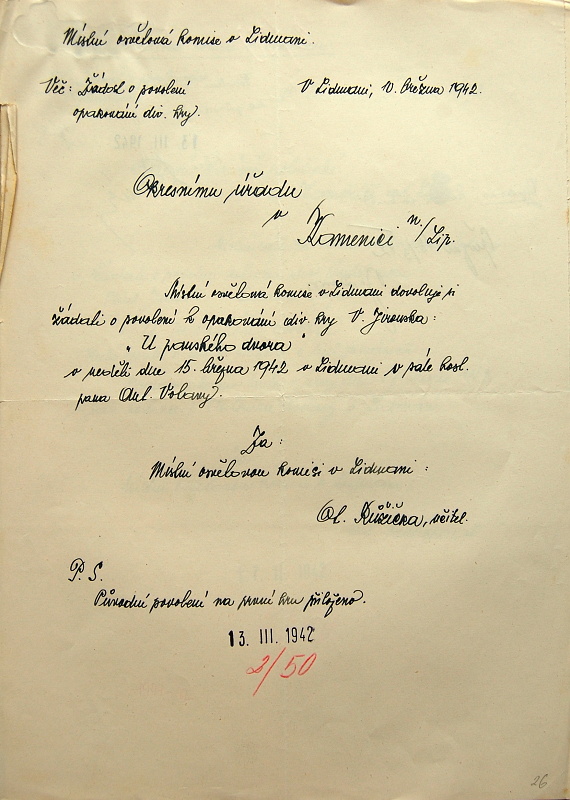 Místní osvětová komise v Lidmani.
Věc: Žádost o povolení
V Lidmani, 10. března 1942.
opakování div. hry.
Okresnímu úřadu
v
Kamenici n./Lip.
Místní osvětová komise v Lidmani dovoluje si
žádati o povolení k opakování div. hry V. Jirouska:
„U panského dvora"
v neděli dne 15. března 1942 v Lidmani v sále host.
pana Ant. Volavy.
Za:
Místní osvětovou komisi v Lidmani:
Ol. Růžička, učitel.
P. S.
Původní povolení na první hru přiloženo.
13. III. 1942
2/50
26